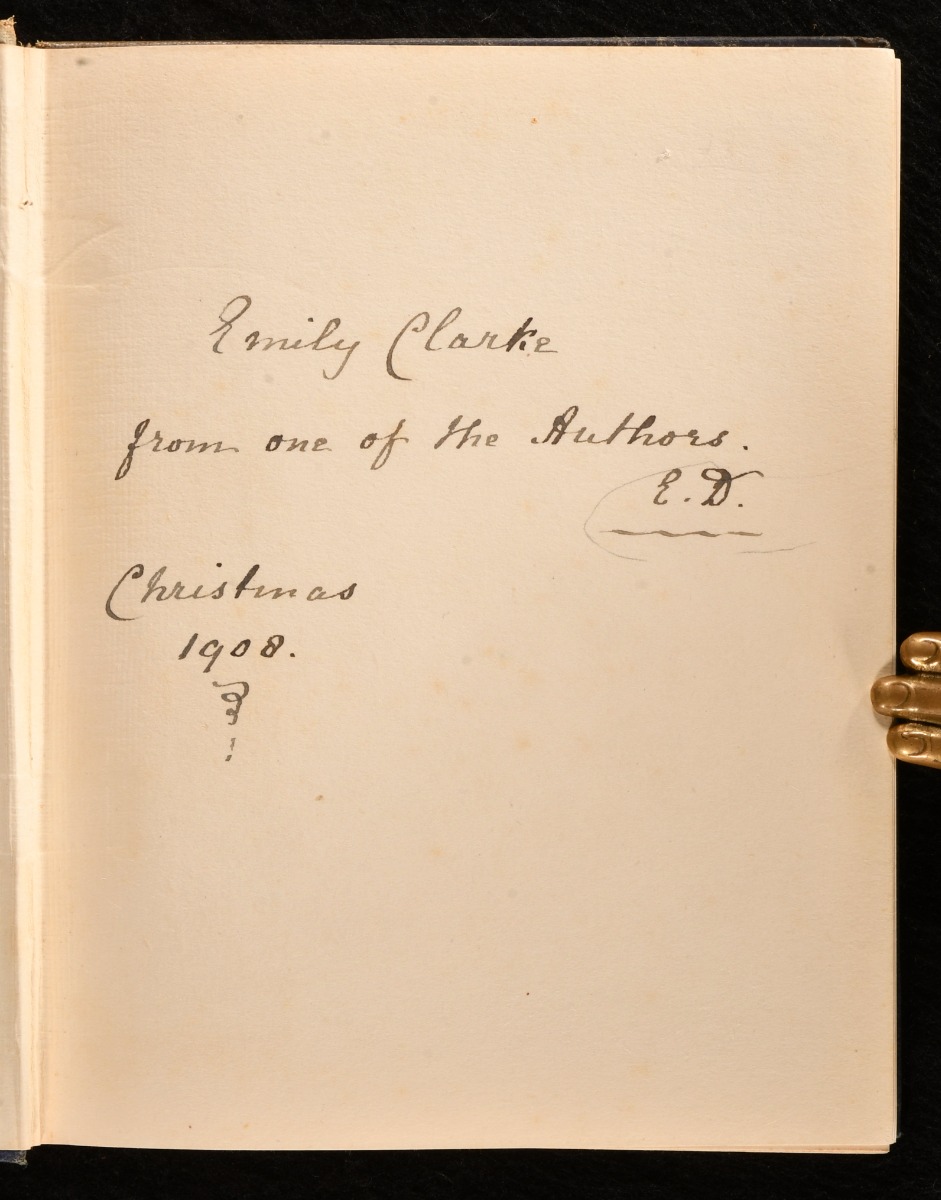 Emily Clarke
from one of the Authors.
E. D.
Christmas
1908.